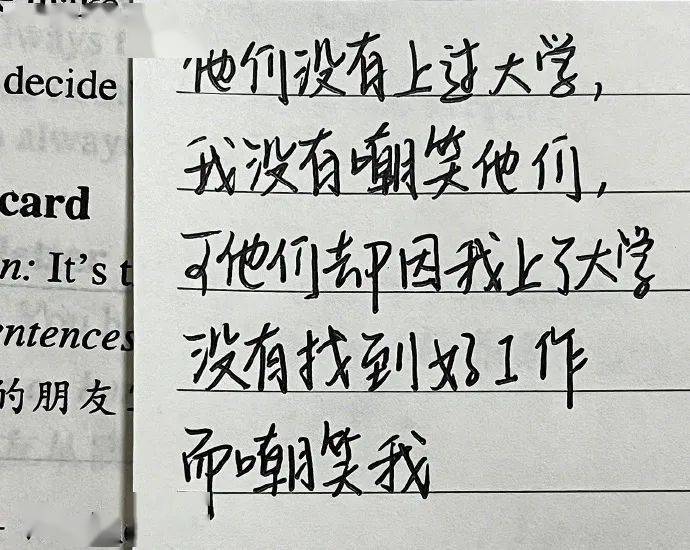 decide
always
card
n: It's t
entences
的朋友
他们没有上过大学,
我没有嘲笑他们,
可他们却因我上了大学
没有找到好工作
而嘲笑我